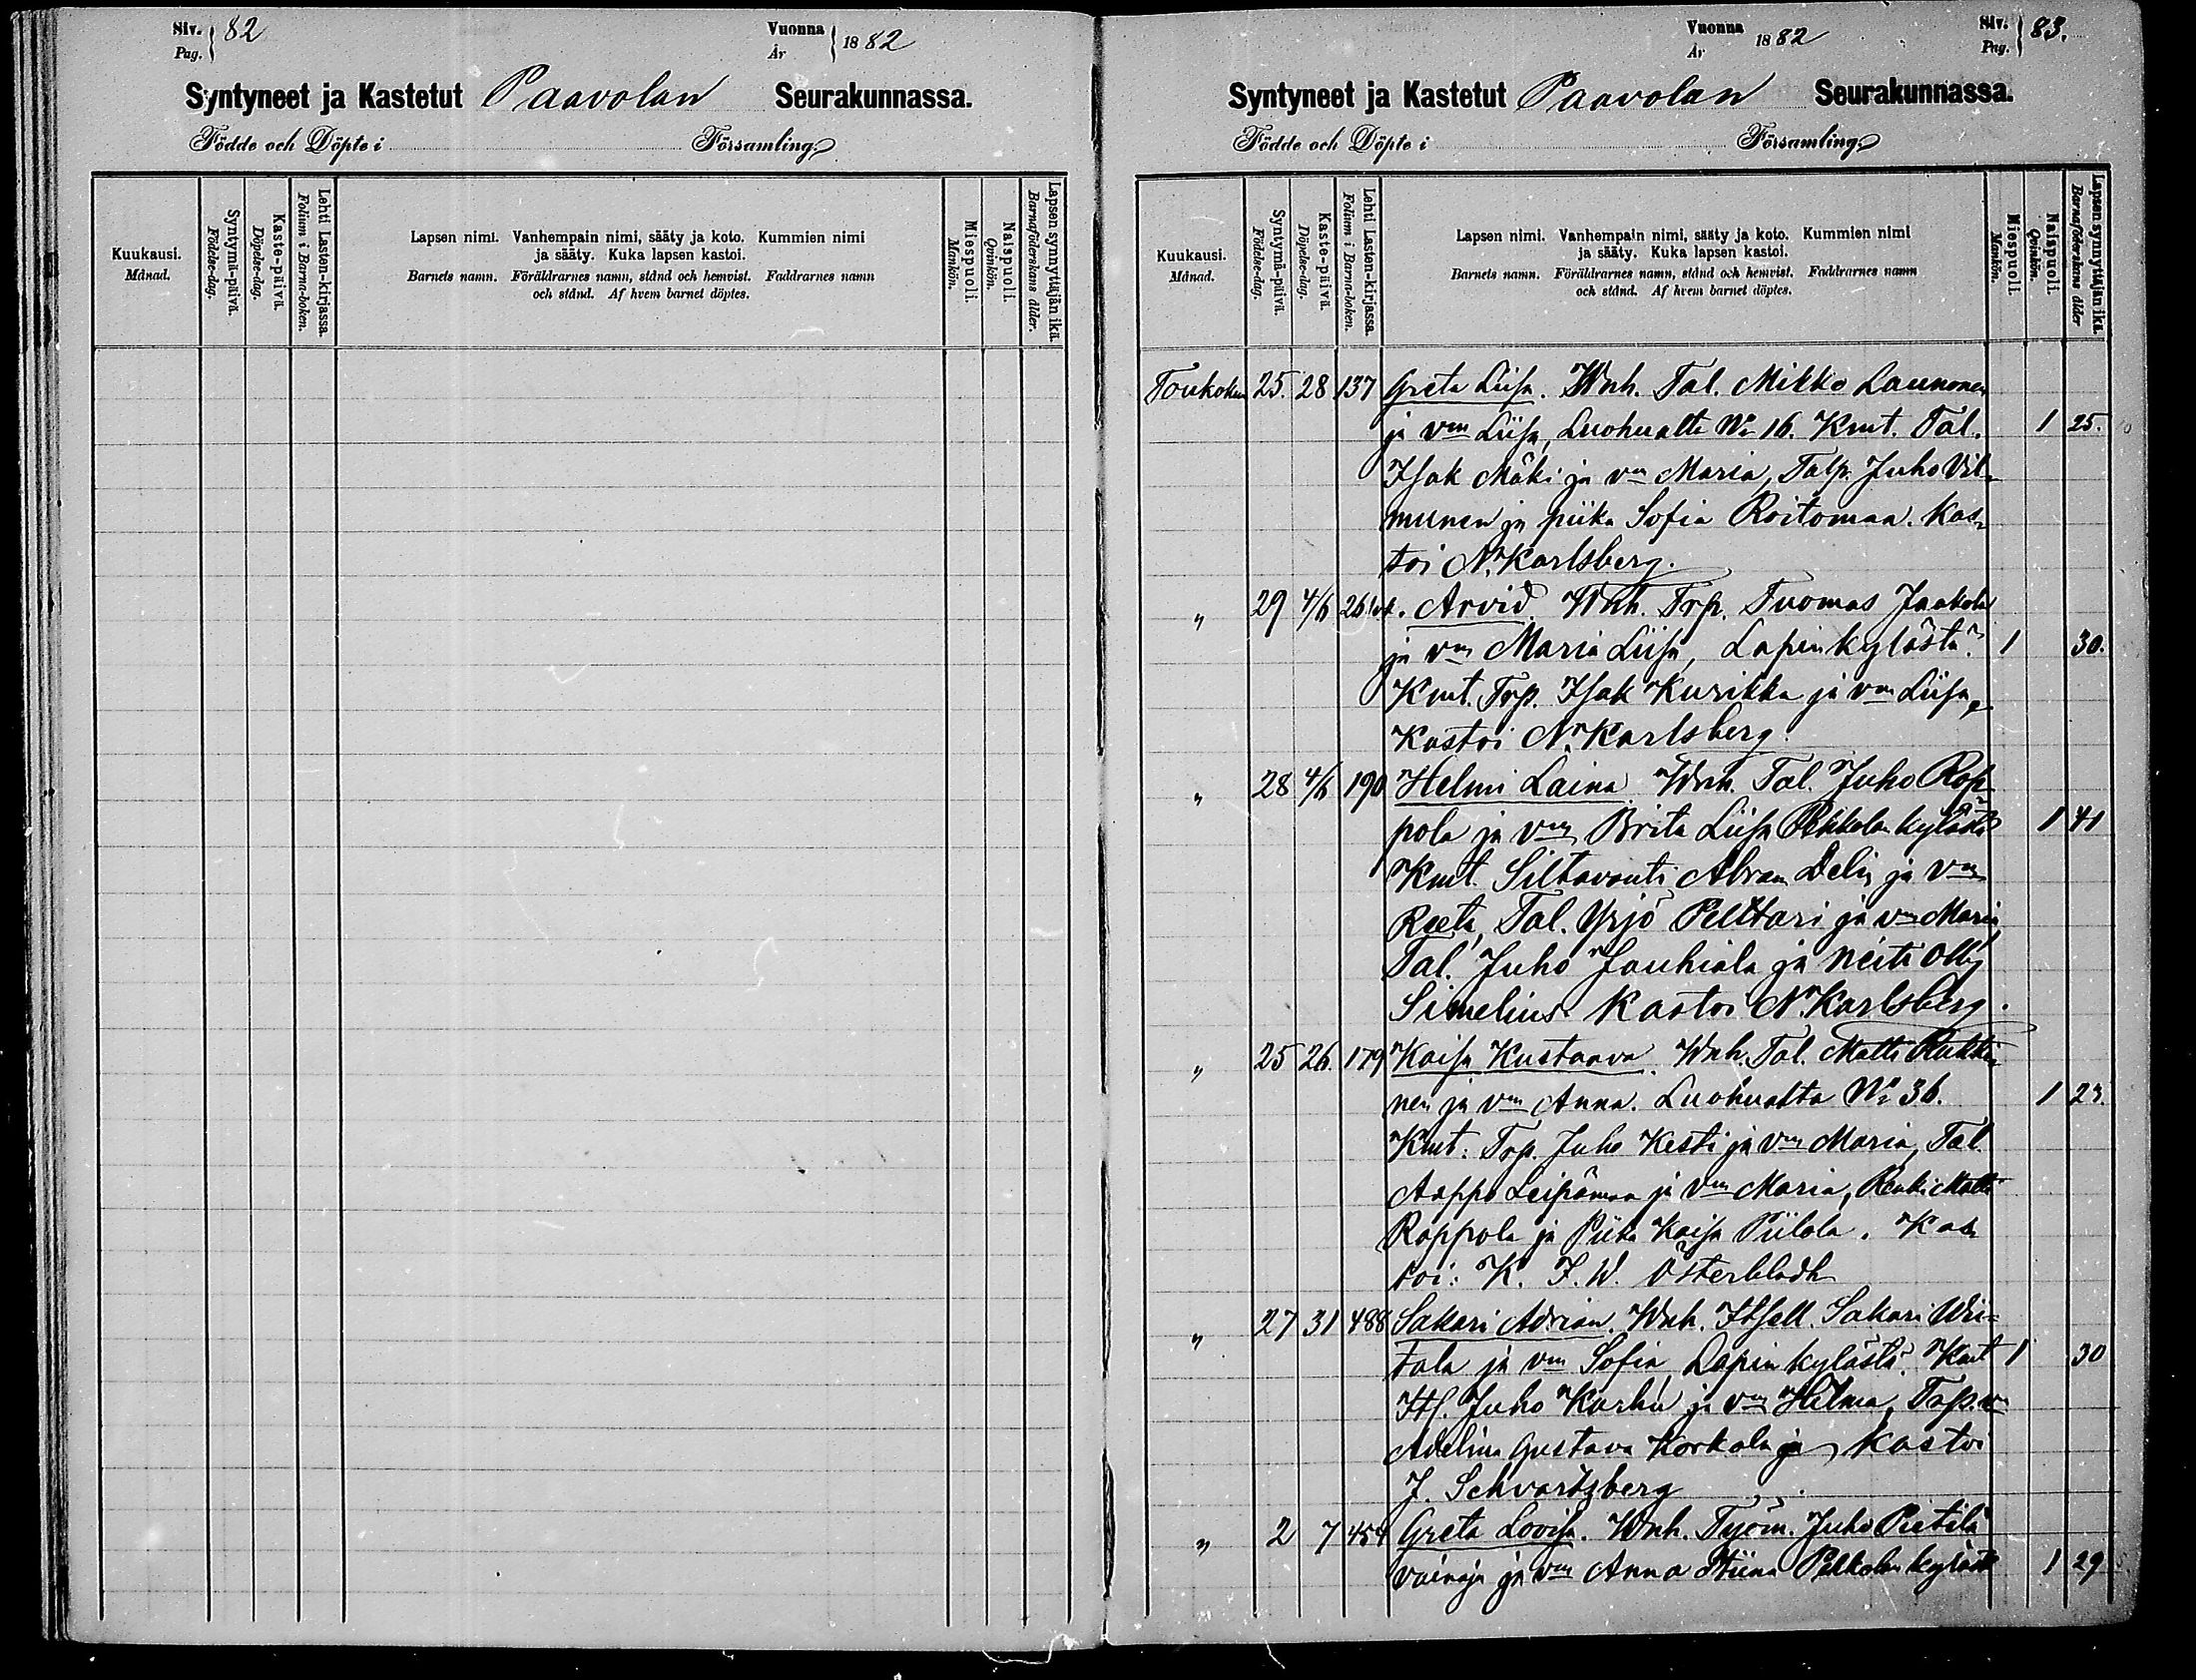 Siv. 82
Pag.
Vuonna 1882
År
Syntyneet ja Kastetut Paavolan Seurakunnassa.
Födde och Döpte i Församling.
Kuukausi.
Månad.
Syntymä-päivä.
Födelse-dag.
Kaste-päivä.
Döpelse-dag.
Lehti Lasten-kirjassa.
Folium i Barna-boken.
Lapsen nimi. Vanhempain nimi, sääty ja koto. Kummien nimi
ja sääty. Kuka lapsen kastoi.
Barnets namn. Föräldrarnes namn, stånd och hemvist. Faddrarnes namn
och stånd. Af hvem barnet döptes.
Miespuoli.
Mankön.
Naispuoli.
Qvinkön.
Lapsen synnyttäjän ikä.
Barnaföderskans ålder.
Vuonna 1882
År
Siv. 83.
Pag.
Syntyneet ja Kastetut Paavolan Seurakunnassa.
Födde och Döpte i Församling.
Kuukausi.
Månad.
Syntymä-päivä.
Födelse-dag.
Kaste-päivä.
Döpelse-dag.
Lehti Lasten-kirjassa.
Folium i Barna-boken.
Lapsen nimi. Vanhempain nimi, sääty ja koto. Kummien nimi
ja sääty. Kuka lapsen kastoi.
Barnets namn. Föräldrarnes namn, stånd och hemvist. Faddrarnes namn
och stånd. Af hvem barnet döptes.
Miespuoli.
Mankön.
Naispuoli.
Qvinkön.
Lapsen synnyttäjän ikä.
Barnaföderskans ålder
Toukokuu 25. 28 137 Greta Liisa. Wnh. Tal. Mikko Launonen
ja vm Liisa, Luohualta No 16. Kmt. Tal. 1 25.
Isak Mäki ja vm Maria, Talp. Juho Vil-
munen ja piika Sofia Roitomaa. Kas-
toi N. Karlsberg.
" 29 4/6 261 Arvid. Wnh. Trp. Tuomas Jaakola
ja vm Maria Liisa, Lapinkylästä. 1 30.
Kmt. Trp. Isak Kurikka ja vm Liisa,
Kastoi N. Karlsberg.
" 28 4/6 190 Helmi Laina. Wnh. Tal. Juho Rop-
pola ja vm Brita Liisa Pehkolan kylästä 1 41
Kmt. Siltavouti Abram Delin ja vm
Reeta, Tal. Yrjö Pelttari ja vm Maria,
Tal. Juho Jauhiala ja neiti Olly
Simelius. Kastoi N. Karlsberg.
" 25 26. 179 Kaisa Kustaava. Wnh. Tal. Matti
nen ja vm Anna. Luohualta No 36. 1 23.
Kmt: Trp. Juho Kesti ja vm Maria, Tal.
Aappo Leipämaa ja vm Maria, Renki Matti
Roppola ja Piika Kaisa Piilola. Kas-
toi: K. F. W. Österbladh
" 27 31 488 Sakari Adrian. Wnh. Itsell. Sakari Wii-
tala ja vm Sofia Lapinkylästä. Kmt 1 30
Its. Juho Karhu ja vm Hilma, Trp. vm
Adelina Gustava Korkala ja Kastoi
J. Schvartzberg
" 2 7 454 Greta Lovisa. Wnh. Työm. Juho Pietilä
vainaja ja vm Anna Stiina Pehkolan kylästä 1 29